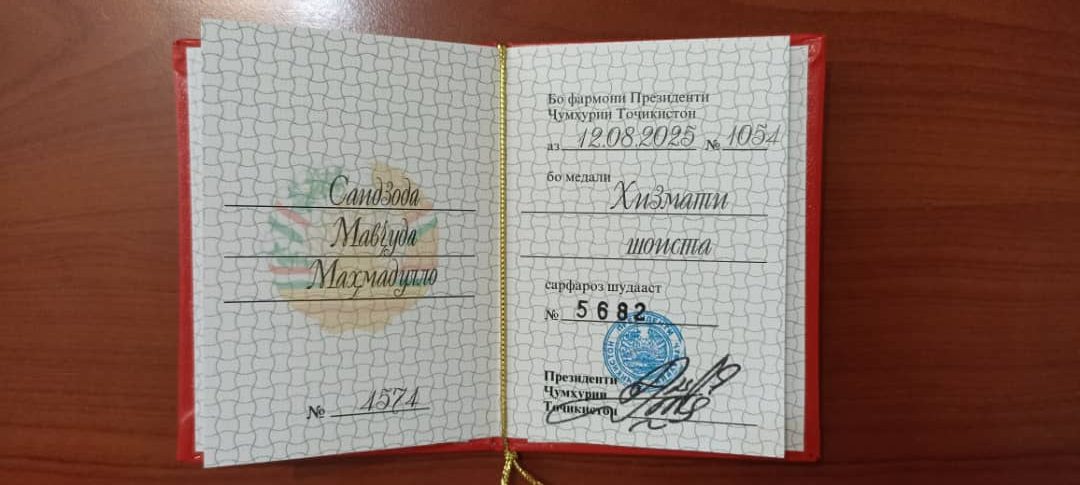 Саидзода
Мавҷуда
Маҳмадулло
№ 1571
Бо фармони Президенти
Ҷумҳурии Тоҷикистон
аз 12.08.2025 № 1054
бо медали
Хизмати
шоиста
сарфароз шудааст
№ 5682
Президенти
Ҷумҳурии
Тоҷикистон